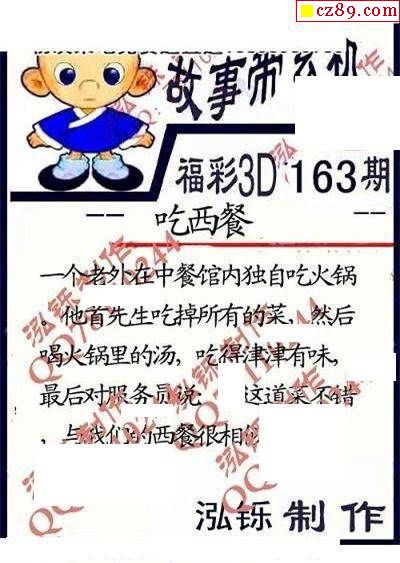 cz89.com
故事带玄机
福彩3D 163期
吃西餐
一个老外在中餐馆内独自吃火锅
。他首先生吃掉所有的菜，然后
喝火锅里的汤，吃得津津有味，
最后对服务员说： 这道菜不错
，与我们的西餐很相似
泓铄 制作